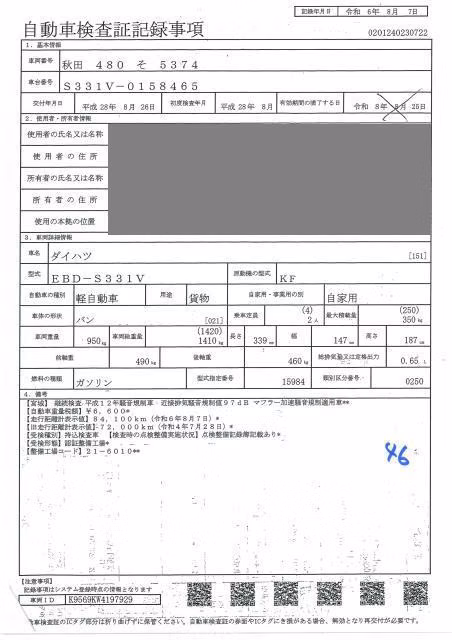 記録年月日 令和 6年 8月 7日
自動車検査証記録事項
0201240230722
1. 基本情報
車両番号 秋田 480 そ 5374
車台番号 S331V-0158465
交付年月日 平成 28年 8月 26日 初度検査年月 平成 28年 8月 有効期間の満了する日 令和 8年 8月 25日
2. 使用者・所有者情報
使用者の氏名又は名称
使用者の住所
所有者の氏名又は名称
所有者の住所
使用の本拠の位置
3. 車両詳細情報
車名 ダイハツ [151]
型式 EBD-S331V 原動機の型式 KF
自動車の種別 軽自動車 用途 貨物 自家用・事業用の別 自家用
車体の形状 バン [021] 乗車定員 (4) 2人 最大積載量 (250) 350kg
車両重量 950kg 車両総重量 (1420) 1410kg 長さ 339cm 幅 147cm 高さ 187cm
前軸重 490kg 後軸重 460kg 総排気量又は定格出力 0.65L
燃料の種類 ガソリン 型式指定番号 15984 類別区分番号 0250
4. 備考
【宮城】 継続検査 平成12年騒音規制車 近接排気騒音規制値97dB マフラー加速騒音規制適用車**
【自動車重量税額】¥6,600*
【走行距離計表示値】84,100km(令和6年8月7日)*
【旧走行距離計表示値】72,000km(令和4年7月28日)*
【受検種別】持込検査車 【検査時の点検整備実施状況】点検整備記録簿記載あり*
【受検形態】認証整備工場*
【整備工場コード】21-6010**
46
【注意事項】
記録事項はシステム登録時点の情報となります
車両ID K9569KW4197929
自動車検査証のICタグ部分は折り曲げずに保管ください。自動車検査証の券面やICタグにき損がある場合、無効となり再交付が必要です。